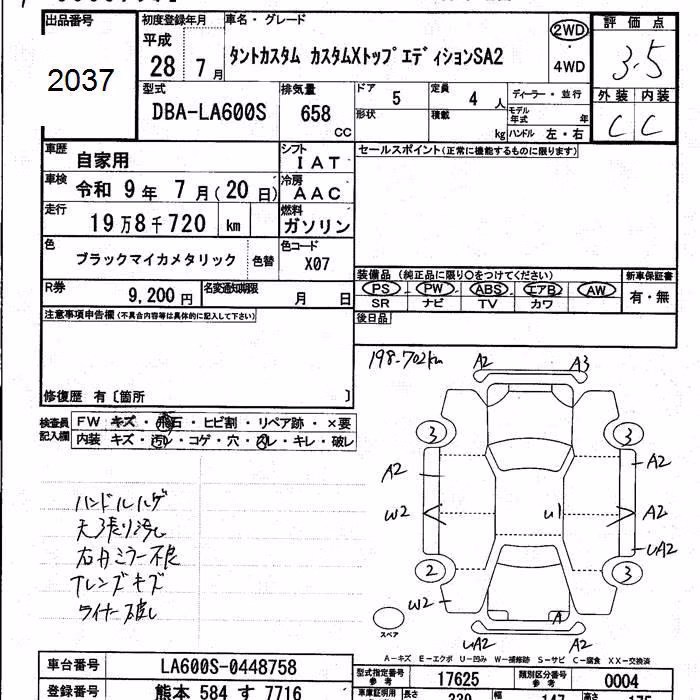 出品番号
2037
初度登録年月
平成
28年7月
車名・グレード
タントカスタム カスタムXトップエディションSA2
2WD
・
4WD
評価点
3.5
外装 内装
C C
型式
DBA-LA600S
排気量
658
CC
ドア
5
定員
4人
形状
積載
kg
ディーラー・並行
モデル年式
年
ハンドル 左・右
車歴
自家用
シフト
IAT
セールスポイント(正常に機能するものに限ります)
車検
令和 9年 7月(20日)
冷房
AAC
走行
19万8千720 km
燃料
ガソリン
色
ブラックマイカメタリック
色替
色コード
X07
装備品 (純正品に限り○をつけてください)
新車保証書
PS PW ABS エアB AW
SR ナビ TV カワ
有・無
R券
9,200円
名変通知期限
月 日
後日品
注意事項申告欄(不具合内容等は具体的に記入して下さい)
修復歴 有〔箇所 〕
検査員記入欄
FW キズ・飛石・ヒビ割・リペア跡・×要
内装 キズ・汚レ・コゲ・穴・スレ・キレ・破レ
198-702km
A2 A3
3 3
A2 A2
W2 U1 A2
UA2
2 3
W2
A
UA2 A2
スペア
ハンドルハゲ
天張り汚れ
右ドアミラー不良
Tレンズキズ
ライナー破し
A-キズ E-エクボ U-凹み W-補修跡 S-サビ C-腐食 XX-交換済
車台番号
LA600S-0448758
登録番号
熊本 584 す 7716
型式指定番号
参考
17625
類別区分番号
参考
0004
車庫証明用
長さ
339
幅
147
高さ
175